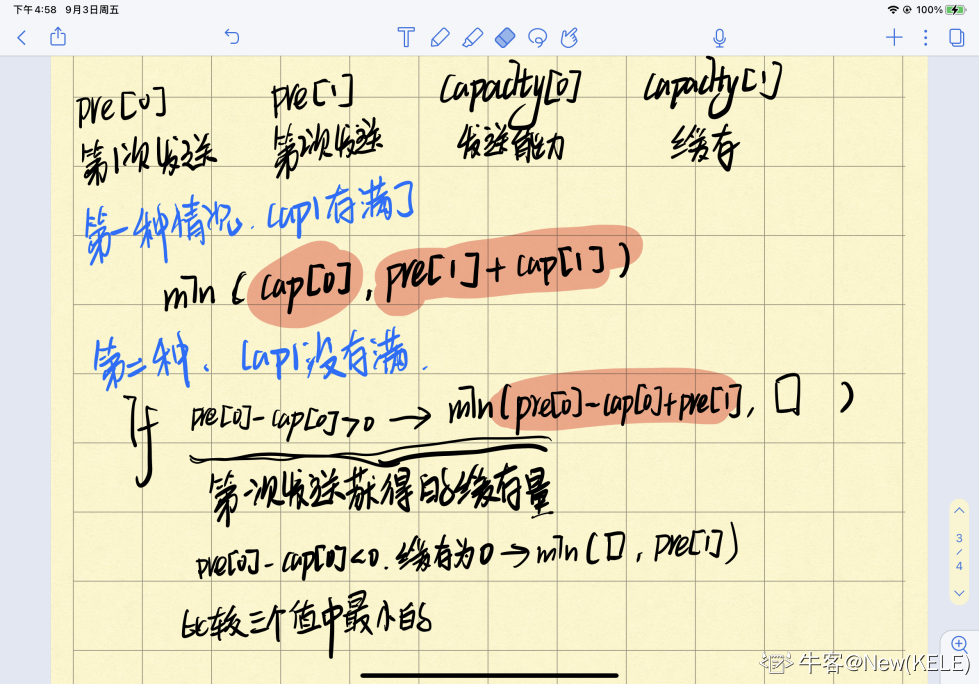 下午4:58 9月3日周五 100%
pre[0] pre[1] capacity[0] capacity[1]
第1次发送 第2次发送 发送能力 缓存
第一种情况. cap1存满了
min ( cap[0], pre[1]+cap[1] )
第二种. cap1没存满.
If pre[0]-cap[0]>0 → min(pre[0]-cap[0]+pre[1], □ )
第一次发送获得的缓存量
pre[0]-cap[0]<0. 缓存为0 → min(□, pre[1])
比较三个值中最小的
3
/
4
牛客@New(KELE)